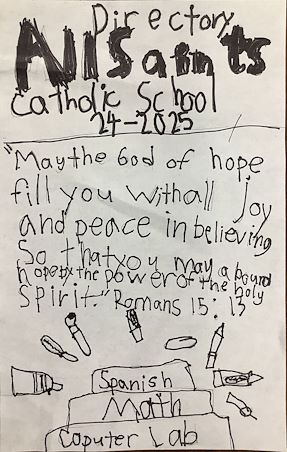 Directory
All Saints
Catholic School
24-2025
"May the God of hope
fill you with all joy
and peace in believing
So that you may abound
hope by the power of the holy
Spirit." Romans 15:13
Spanish
Math
Coputer Lab